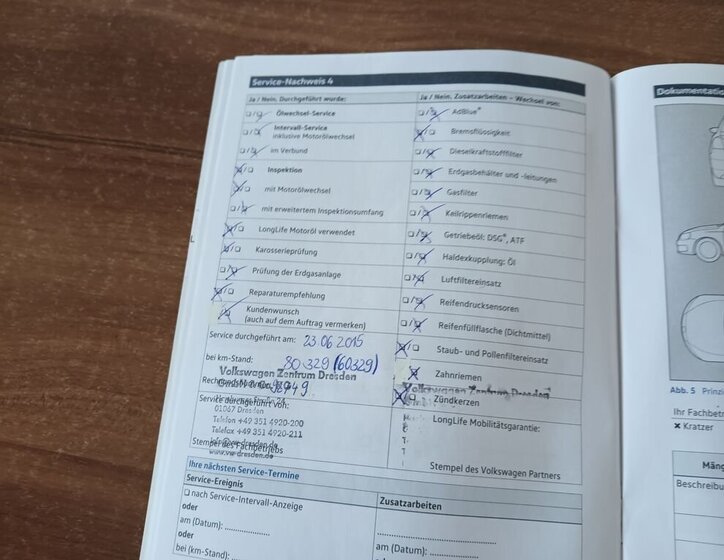 Service-Nachweis 4
Ja / Nein, Durchgeführt wurde:
Ölwechsel-Service
Intervall-Service
inklusive Motorölwechsel
im Verbund
Inspektion
mit Motorölwechsel
mit erweitertem Inspektionsumfang
LongLife Motoröl verwendet
Karosserieprüfung
Prüfung der Erdgasanlage
Reparaturempfehlung
Kundenwunsch
(auch auf dem Auftrag vermerken)
Service durchgeführt am: 23.06 2015
bei km-Stand: 30329 (60329)
Volkswagen Zentrum Dresden
Service durchgeführt von:
01067 Dresden
Telefon +49 351 4920-200
Telefax +49 351 4920-211
Stempel des Fachbetriebs
www.vw-dresden.de
Ja / Nein, Zusatzarbeiten – Wechsel von:
AdBlue®
Bremsflüssigkeit
Dieselkraftstofffilter
Erdgasbehälter und -leitungen
Gasfilter
Keilrippenriemen
Getriebeöl: DSG®, ATF
Haldexkupplung: Öl
Luftfiltereinsatz
Reifendrucksensoren
Reifenfüllflasche (Dichtmittel)
Staub- und Pollenfiltereinsatz
Zahnriemen
Volkswagen Zentrum Dresden
Zündkerzen
LongLife Mobilitätsgarantie:
Stempel des Volkswagen Partners
Ihre nächsten Service-Termine
Service-Ereignis
nach Service-Intervall-Anzeige
oder
am (Datum): ................
oder
bei (km-Stand):
Zusatzarbeiten
am (Datum): ................
oder
Dokumentatio
Abb. 5 Prinzi
Ihr Fachbetri
× Kratzer
Mäng
Beschreibu